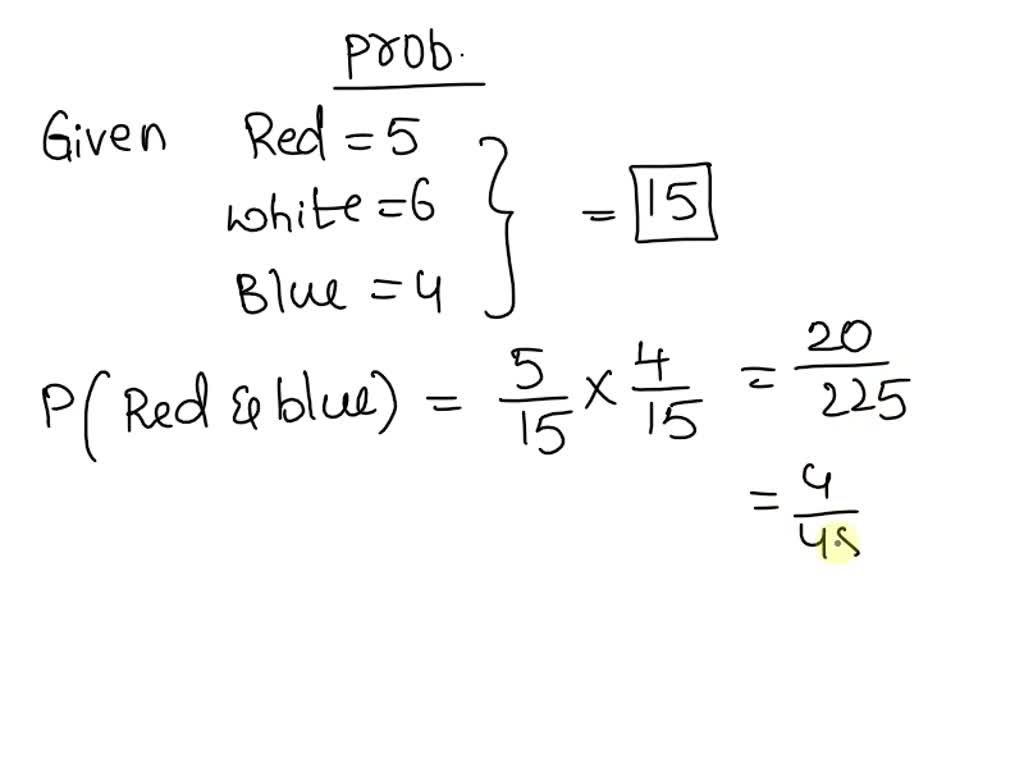 Prob.
Given Red = 5
white = 6
Blue = 4
} = 15
P(Red & blue) = 5/15 × 4/15 = 20/225
= 4/45